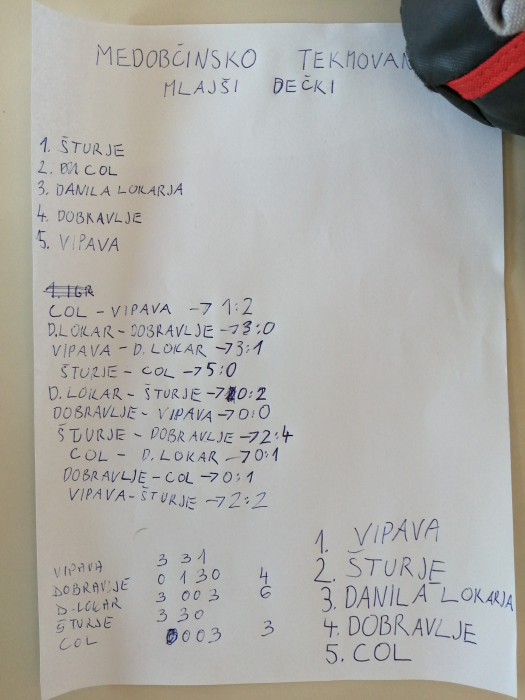 MEDOBČINSKO TEKMOVAN
MLAJŠI DEČKI
1. ŠTURJE
2. COL
3. DANILA LOKARJA
4. DOBRAVLJE
5. VIPAVA
1. IGR
COL - VIPAVA → 1:2
D.LOKAR - DOBRAVLJE → 3:0
VIPAVA - D. LOKAR → 3:1
ŠTURJE - COL → 5:0
D. LOKAR - ŠTURJE → 0:2
DOBRAVLJE - VIPAVA → 0:0
ŠTURJE - DOBRAVLJE → 2:4
COL - D. LOKAR → 0:1
DOBRAVLJE - COL → 0:1
VIPAVA - ŠTURJE → 2:2
VIPAVA 3 3 1
DOBRAVLJE 0 1 3 0 4
D. LOKAR 3 0 0 3 6
ŠTURJE 3 3 0
COL 0 0 0 3 3
1. VIPAVA
2. ŠTURJE
3. DANILA LOKARJA
4. DOBRAVLJE
5. COL